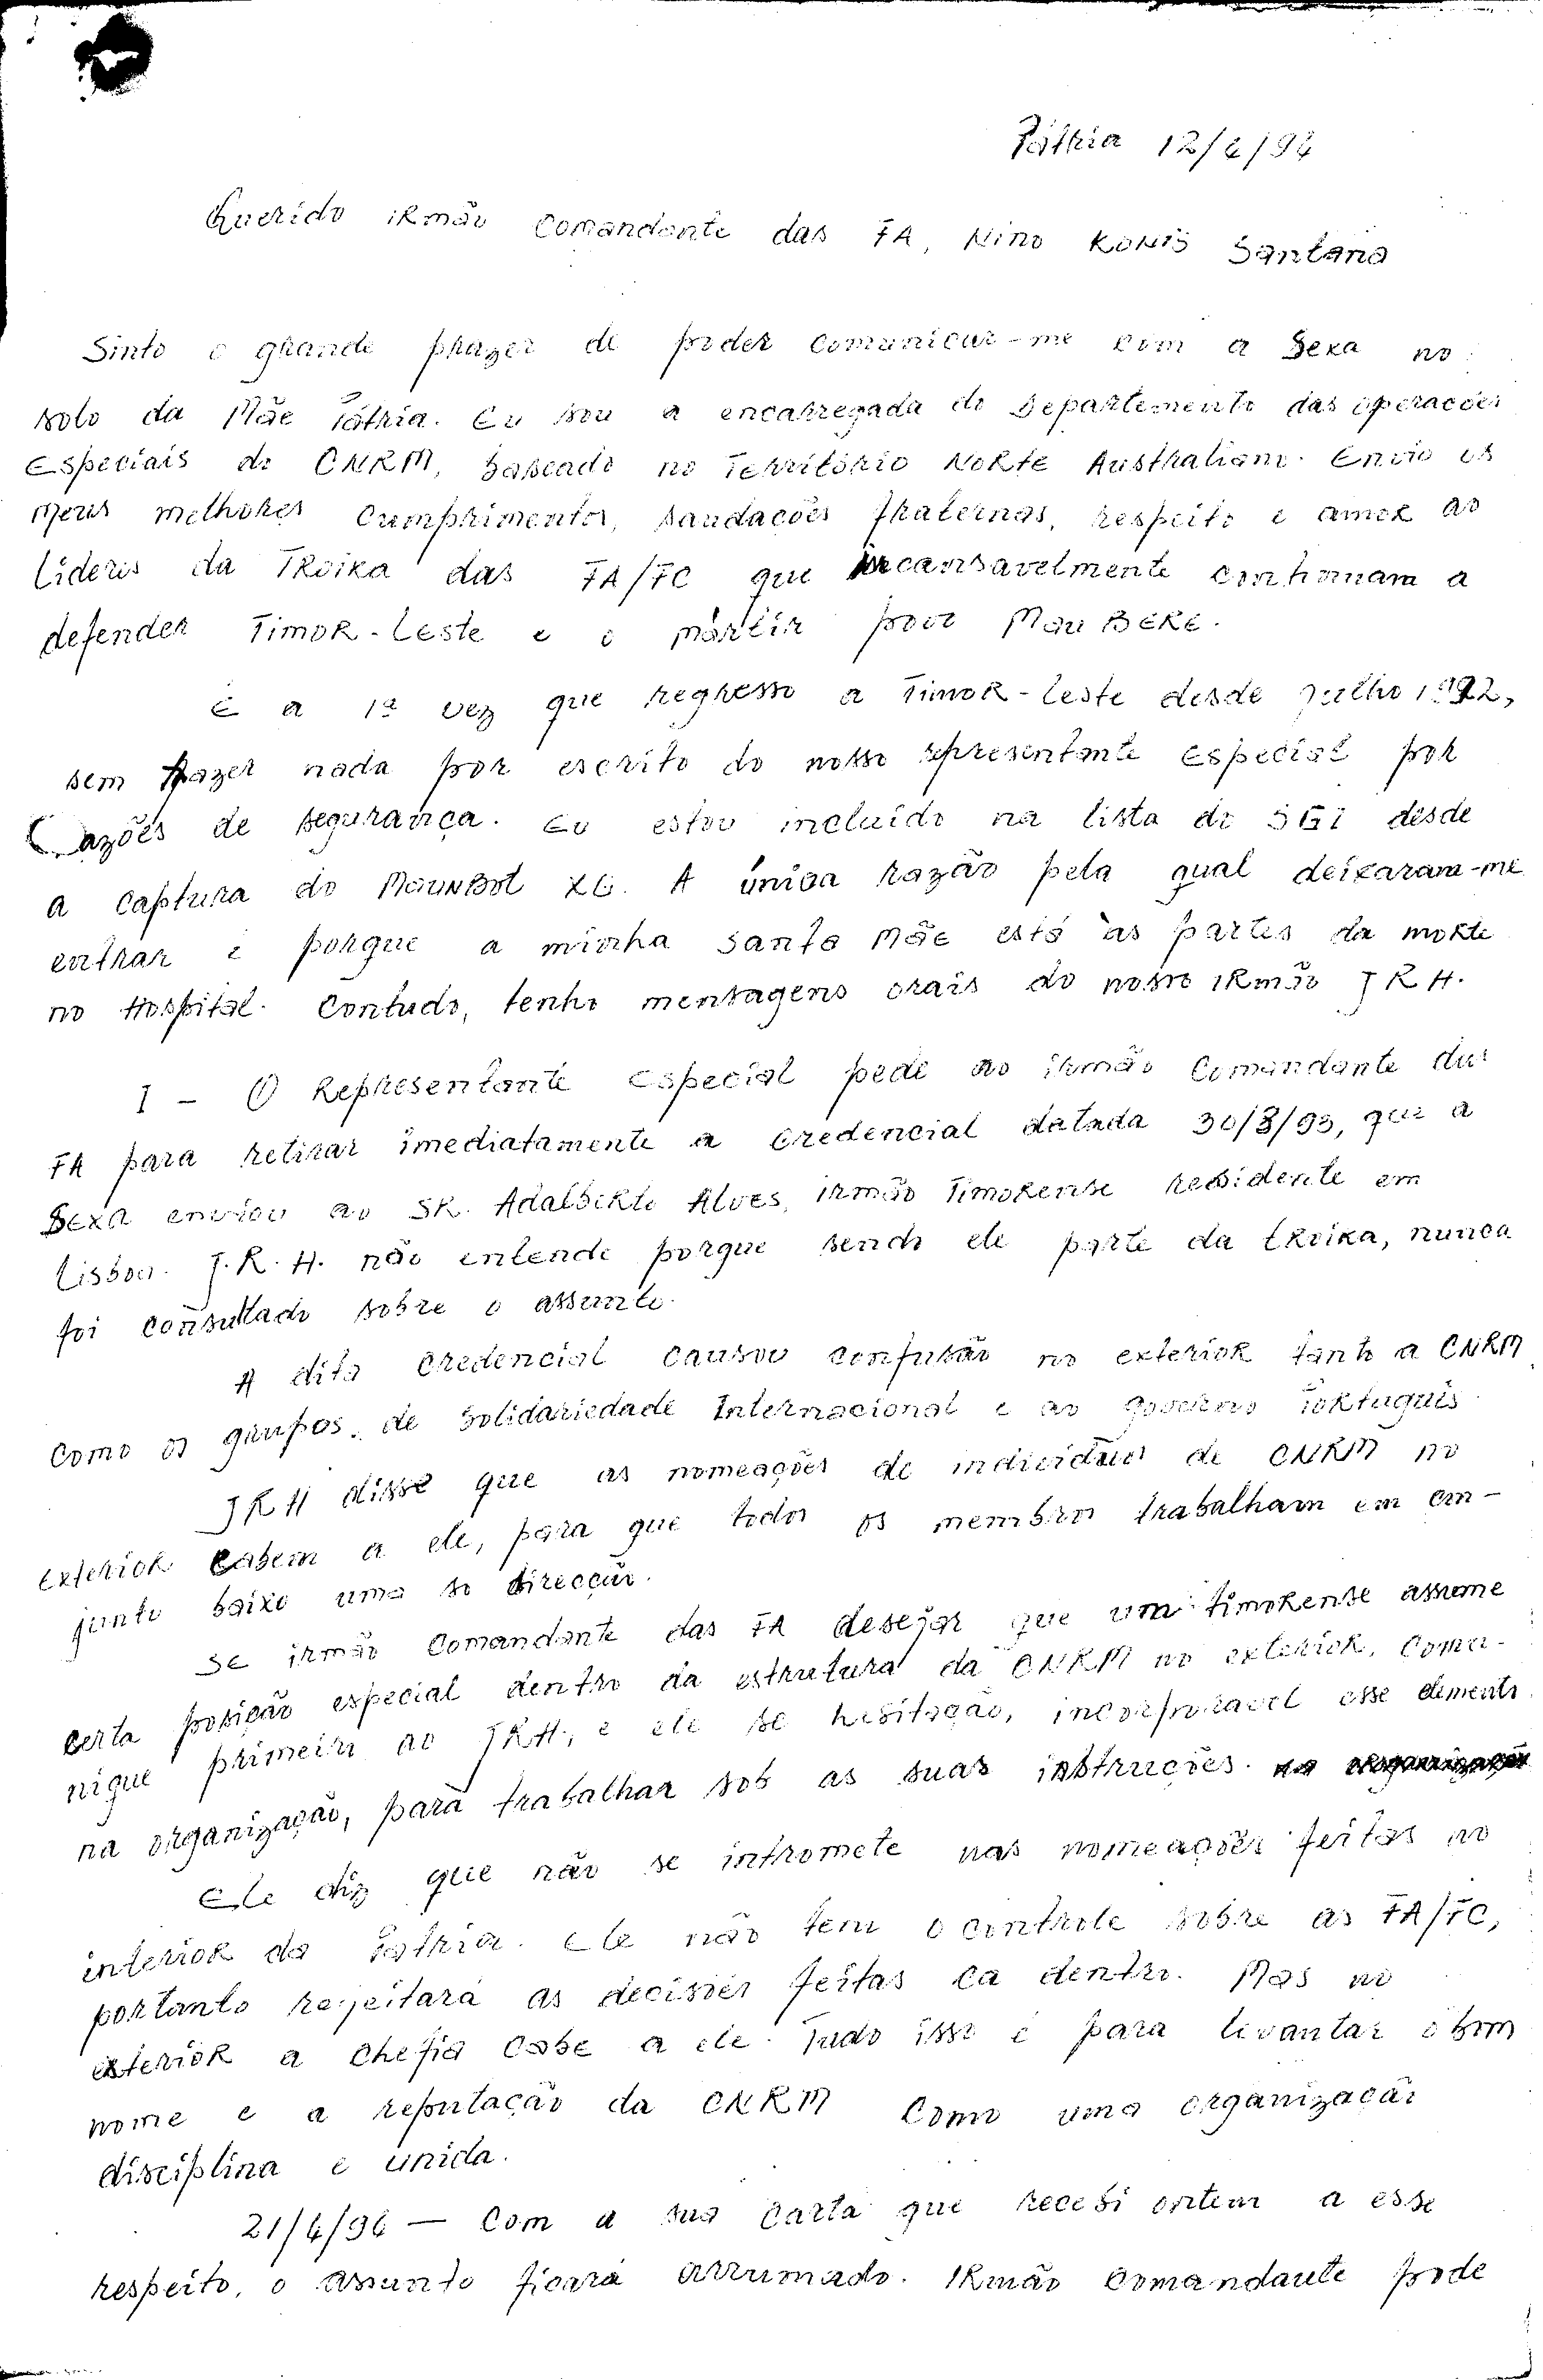 Pátria 12/4/94
Querido iRmão Comandante das FA, Nino KONIS Santana
Sinto o grande prazer de poder comunicar-me com a Sexa no
solo da Mãe Pátria. Eu sou a encarregada do Departemento das operacões
Especiais do CNRM, baseado no Território NORTE Australiano. Envio os
meus melhores cumprimentos, saudacões fraternas, respeito e amor ao
líderes da TROIKA das FA/FC que incansavelmente continuam a
defender TimOR-Leste e o mártir povo MauBERE.
É a 1ª vez que regresso a TimOR-Leste desde julho 1992,
sem trazer nada por escrito do nosso representante Especial por
razões de segurança. Eu estou incluído na lista do SGI desde
a captura do MaunBot XG. A única razão pela qual deixaram-me
entrar é porque a minha santa Mãe está às partes da morte
no Hospital. Contudo, tenho mensagens orais do nosso iRmão JRH.
I - O Representante Especial pede ao irmão Comandante das
FA para retirar imediatamente a credencial datada 30/8/93, que a
Sexa enviou ao SR. Adalberto Alves, irmão Timorense residente em
Lisboa. J.R.H. não entende porque sendo ele parte da troika, nunca
foi consultado sobre o assunto.
A dita credencial causou confusão no exterior tanto a CNRM
como os grupos de Solidariedade Internacional e ao governo Português.
JRH disse que as nomeações de indivíduos de CNRM no
exterior cabem a ele, para que todos os membros trabalham em con-
junto baixo uma so direcção.
Se irmão Comandante das FA desejar que um timorense assume
certa posição especial dentro da estrutura da CNRM no exterior, comu-
nique primeiro ao JRH, e ele se hesitação, incorporavel esse elemento
na organização, para trabalhar sob as suas instruções.
Ele diz que não se intromete nas nomeações feitas no
interior da Pátria. Ele não tem o controle sobre as FA/FC,
portanto respeitará as decisões feitas ca dentro. Mas no
exterior a chefia cabe a ele. Tudo isso é para levantar o bom
nome e a reputação da CNRM como uma organização
disciplina e unida.
21/4/94 — Com a sua carta que recebi ontem a esse
respeito, o assunto ficará arrumado. IRmão Comandante pode